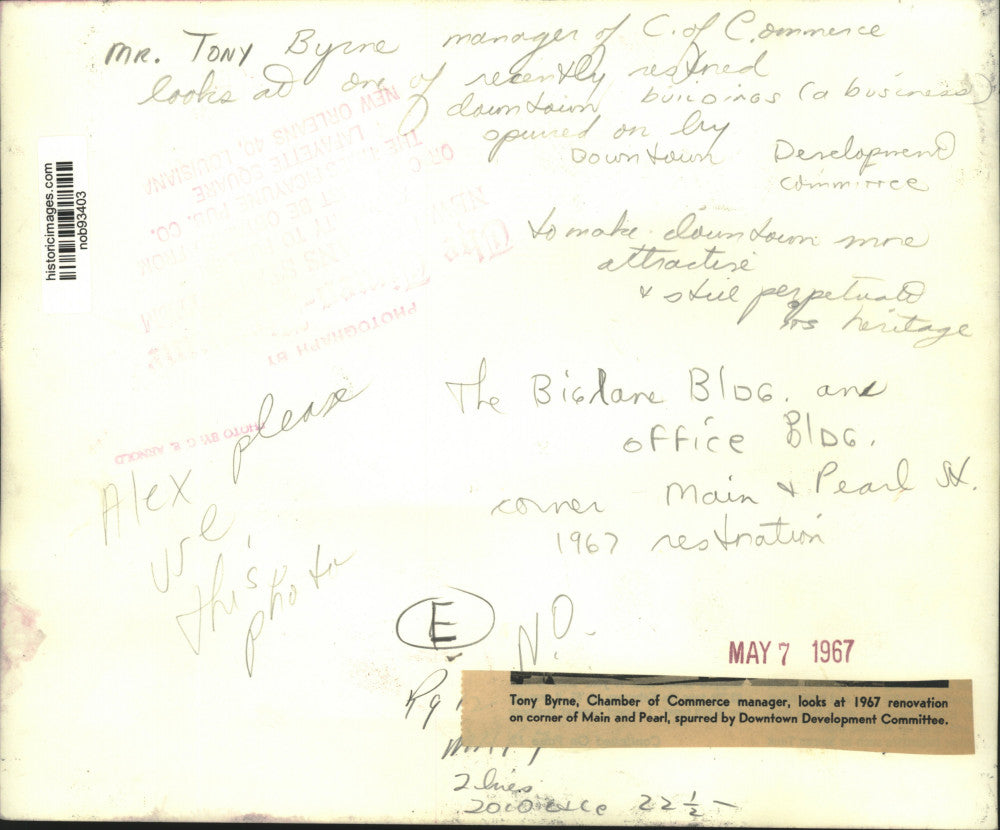 MR. TONY Byrne manager of C. of Commerce
looks at one of recently restored
downtown buildings (a business)
spurred on by
Downtown Development
committee
to make downtown more
attractive
& still perpetuate
its heritage
historicimages.com
nob93403
NEW ORLEANS 40, LOUISIANA
LAFAYETTE SQUARE
PICAYUNE PUB. CO.
PHOTOGRAPH BY
PHOTO BY: G. E. ARNOLD
The Biglane BLDG. and
office BLDG.
corner Main & Pearl St.
1967 restoration
Alex please
use
this
photo
E
N.O.
MAY 7 1967
Pg
Tony Byrne, Chamber of Commerce manager, looks at 1967 renovation
on corner of Main and Pearl, spurred by Downtown Development Committee.
2 lines
22 ½ –